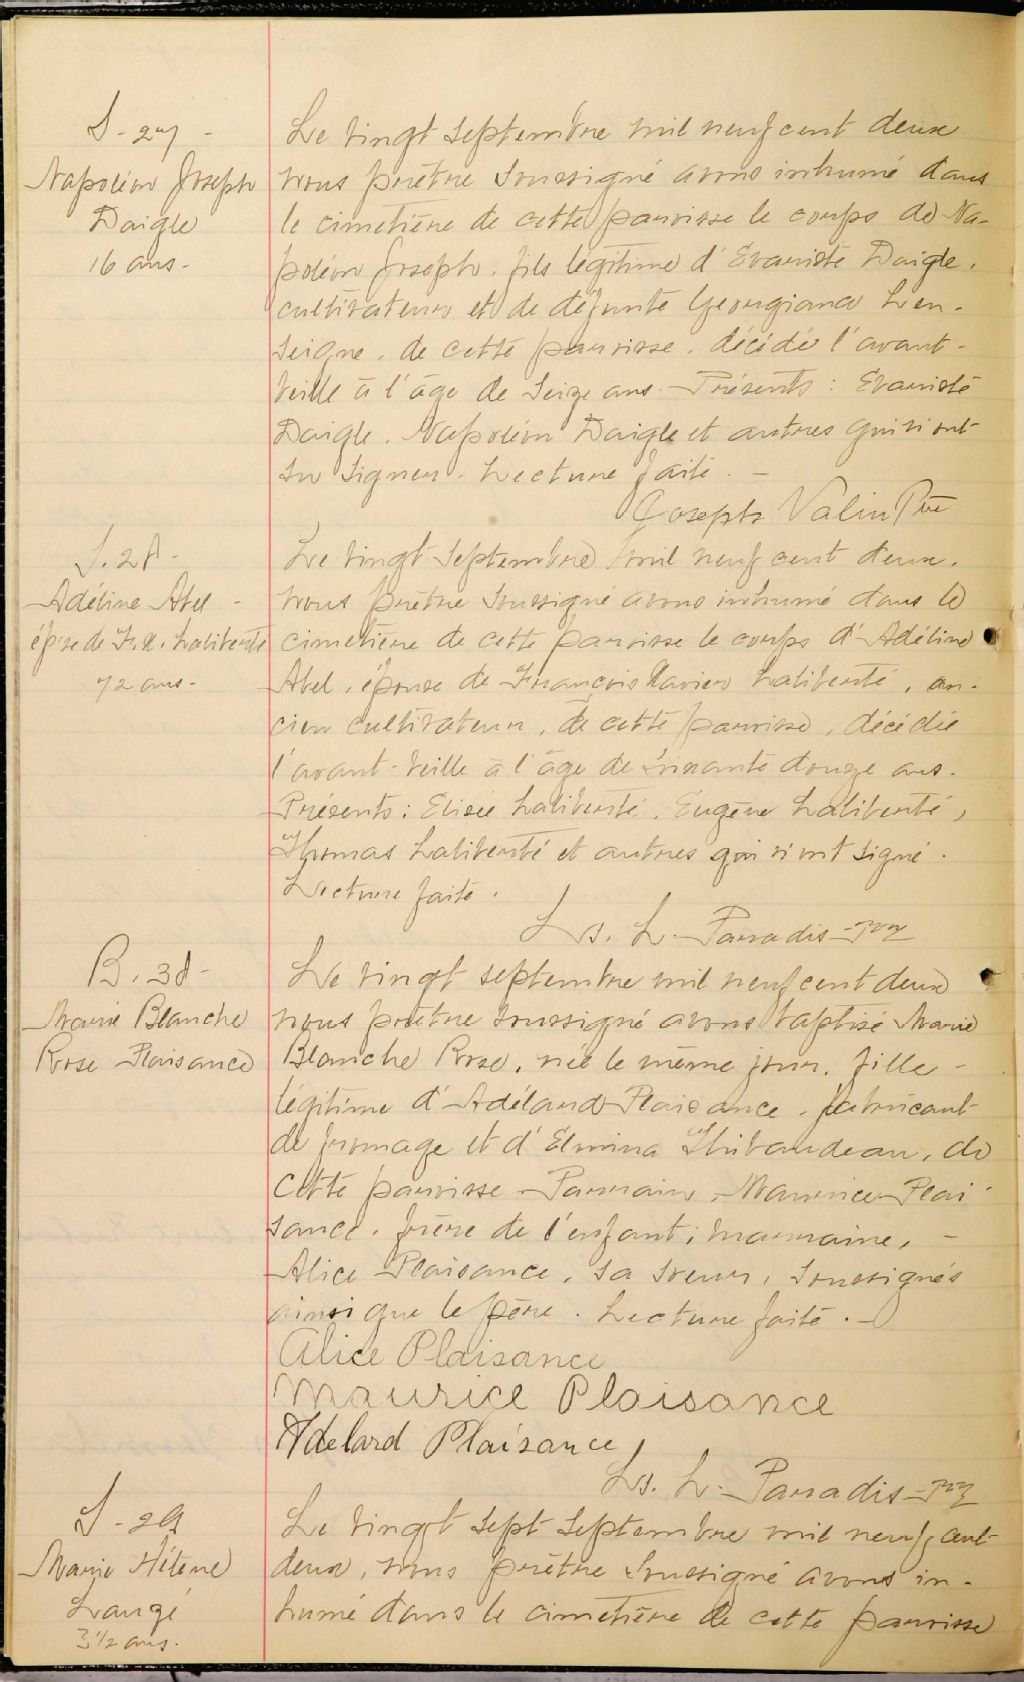 S - 27 -
Napoléon Joseph
Daigle
16 ans -
Le vingt septembre mil neuf cent deux
nous prêtre soussigné avons inhumé dans
le cimetière de cette paroisse le corps de Na-
poléon Joseph, fils légitime d'Evariste Daigle,
cultivateur et de défunte Georgiana Len-
seigne, de cette paroisse, décédé l'avant-
veille à l'âge de seize ans. Présents : Evariste
Daigle, Napoléon Daigle et autres qui n'ont
su signer. Lecture faite. -
Joseph Valin Ptre
S. 28 -
Adéline Abel -
épse de F. X. Laliberté
72 ans -
Le vingt septembre mil neuf cent deux,
nous prêtre soussigné avons inhumé dans le
cimetière de cette paroisse le corps d'Adéline
Abel, épouse de François Xavier Laliberté, an-
cien cultivateur, de cette paroisse, décédée
l'avant-veille à l'âge de soixante douze ans.
Présents : Elisée Laliberté, Eugène Laliberté,
Thomas Laliberté et autres qui n'ont signé.
Lecture faite.
Ls. L. Paradis
B. 38 -
Marie Blanche
Rose Plaisance
Le vingt septembre mil neuf cent deux
nous prêtre soussigné avons baptisé Marie
Blanche Rose, née le même jour, fille -
légitime d'Adélard Plaisance, fabricant
de fromage et d'Elmina Thibaudeau, de
cette paroisse - Parrain, Maurice Plai-
sance, frère de l'enfant; marraine, -
Alice Plaisance, sa soeur, soussignés
ainsi que le père. Lecture faite. -
Alice Plaisance
Maurice Plaisance
Adelard Plaisance
Ls. L. Paradis
S - 29
Marie Hélène
Langé
3 1/2 ans.
Le vingt sept septembre mil neuf cent
deux, nous prêtre soussigné avons in-
humé dans le cimetière de cette paroisse